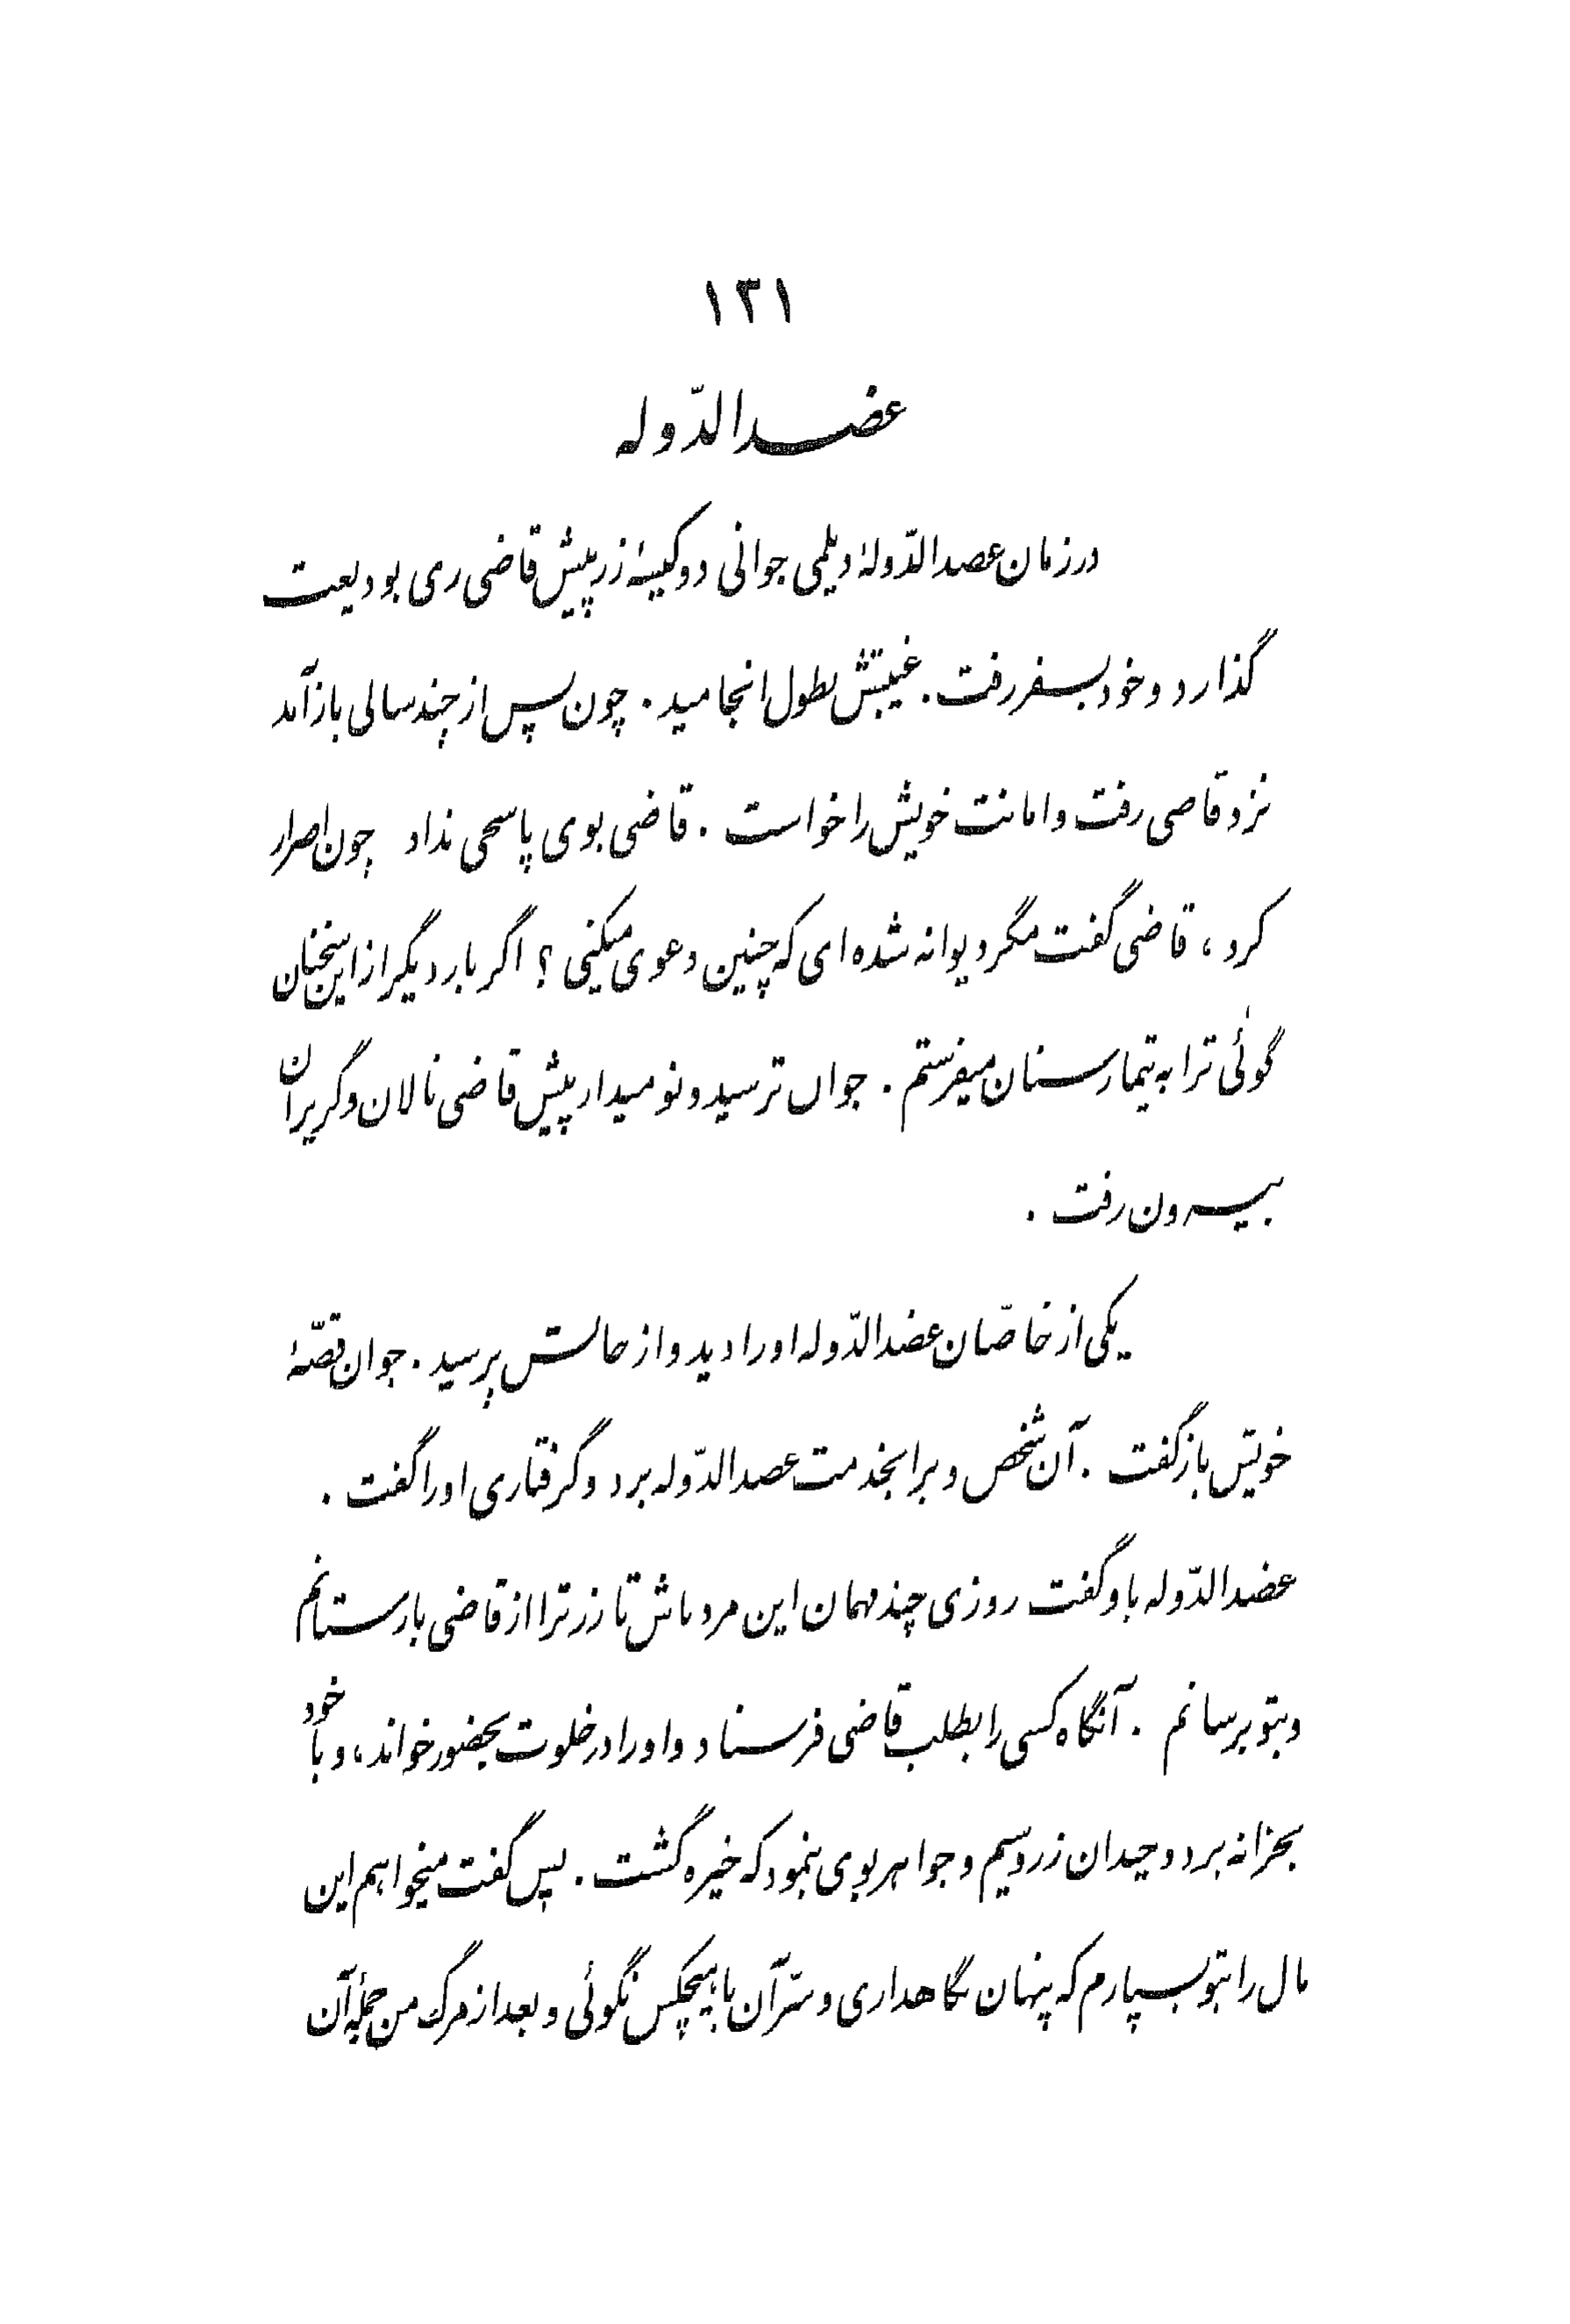 ۱۳۱
عضدالدّوله
در زمان عضدالدّولهٔ دیلمی جوانی دو کیسهٔ زر پیش قاضی ری بودیعت
گذارد و خود بسفر رفت. غیبتش بطول انجامید. چون پس از چند سالی باز آمد
نزد قاضی رفت و امانت خویش را خواست. قاضی بوی پاسخی نداد چون اصرار
کرد، قاضی گفت مگر دیوانه شده‌ای که چنین دعوی میکنی؟ اگر بار دیگر از این سخنان
گوئی ترا به تیمارستان میفرستم. جوان ترسید و نومید از پیش قاضی نالان و گریان
بیرون رفت.
یکی از خاصّان عضدالدّوله او را دید و از حالش پرسید. جوان قصّهٔ
خویش بازگفت. آن شخص ویرا بخدمت عضدالدّوله برد و گرفتاری او را گفت.
عضدالدّوله باو گفت روزی چند مهمان این مرد باش تا زر ترا از قاضی بازستانم
و بتو برسانم. آنگاه کسی را بطلب قاضی فرستاد و او را در خلوت بحضور خواند، و با خود
بخزانه برد و چندان زر و سیم و جواهر بوی بنمود که خیره گشت. پس گفت میخواهم این
مال را بتو بسپارم که پنهان نگاهداری و سرّ آن با هیچکس نگوئی و بعد از مرگ من جملهٔ آن